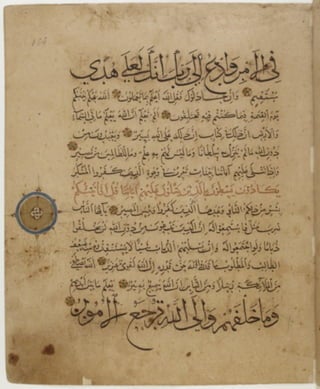 في الأمر وادع إلى ربك إنك لعلى هدى
مستقيم وإن جادلوك فقل الله أعلم بما تعملون الله يحكم بينكم
يوم القيمة فيما كنتم فيه تختلفون ألم تعلم أن الله يعلم ما في السماء
والأرض إن ذلك في كتاب إن ذلك على الله يسير ويعبدون من
دون الله ما لم ينزل به سلطانا وما ليس لهم به علم وما للظالمين من نصير
وإذا تتلى عليهم آياتنا بينات تعرف في وجوه الذين كفروا المنكر
يكادون يسطون بالذين يتلون عليهم آياتنا قل أفأنبئكم
بشر من ذلكم النار وعدها الله الذين كفروا وبئس المصير يا أيها الناس
ضرب مثل فاستمعوا له إن الذين تدعون من دون الله لن يخلقوا
ذبابا ولو اجتمعوا له وإن يسلبهم الذباب شيئا لا يستنقذوه منه ضعف
الطالب والمطلوب ما قدروا الله حق قدره إن الله لقوي عزيز الله يصطفي
من الملائكة رسلا ومن الناس إن الله سميع بصير يعلم ما بين أيديهم
وما خلفهم وإلى الله ترجع الأمور